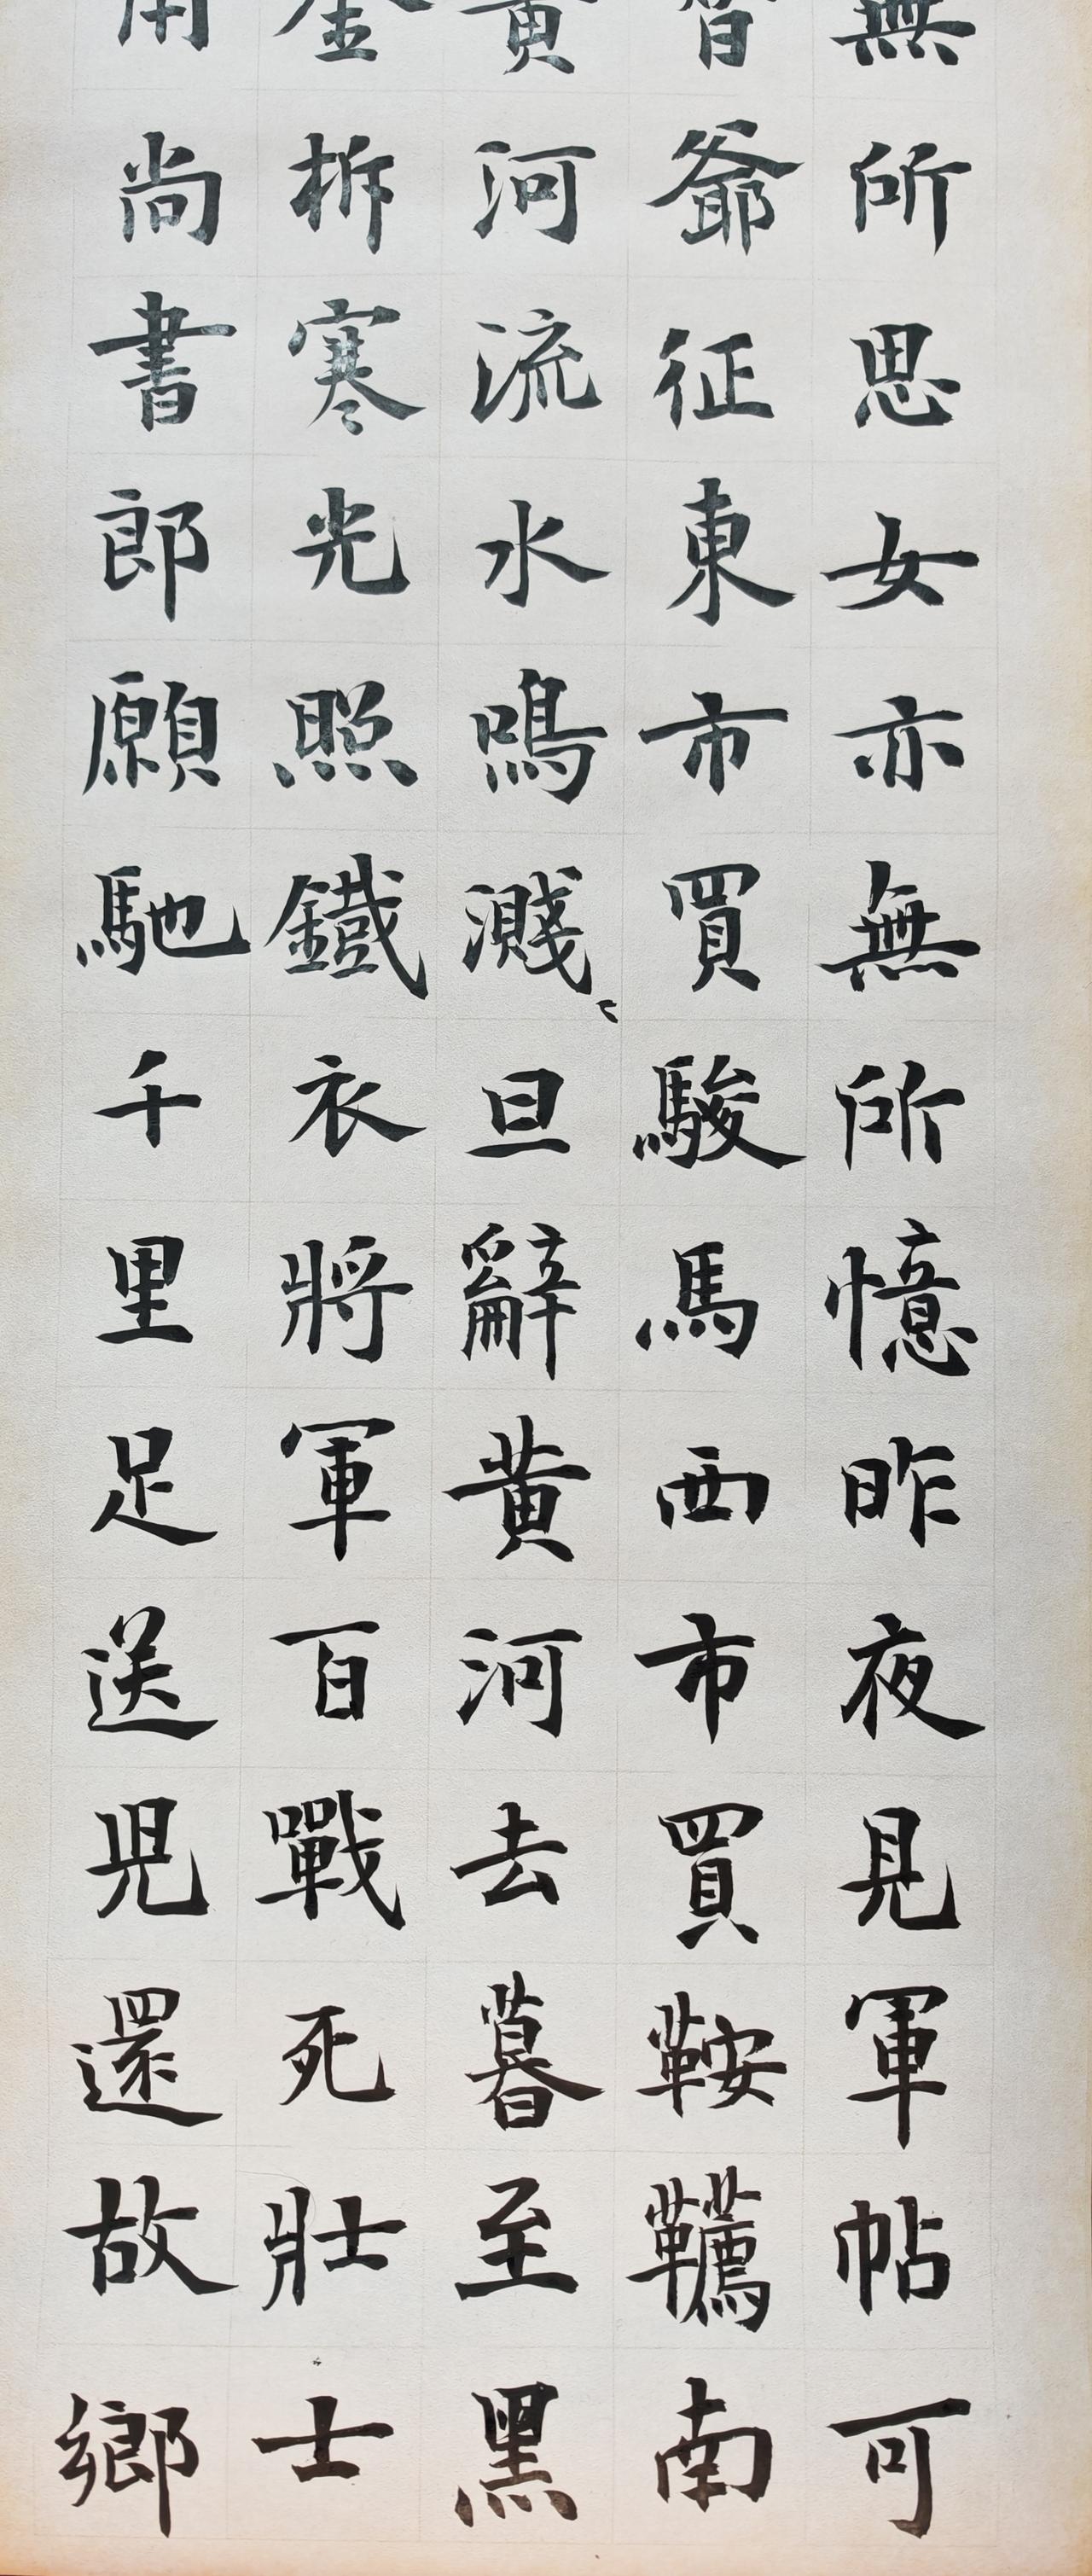 無所思女亦無所憶昨夜見軍帖可
替爺征東市買駿馬西市買鞍韉南
黄河流水鳴濺〻旦辭黄河去暮至黑
金柝寒光照鐵衣將軍百戰死壯士
用尚書郎願馳千里足送兒還故鄉